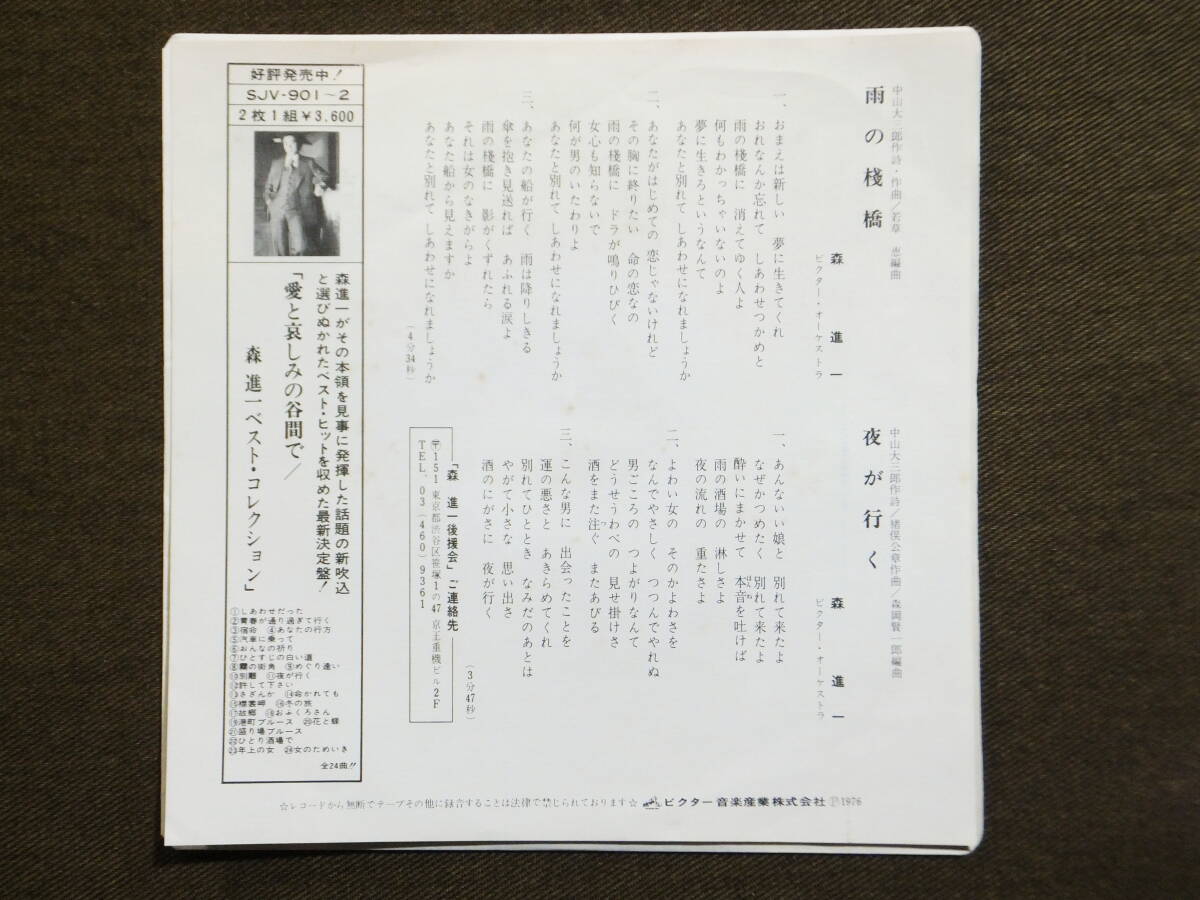 雨の棧橋
中山大三郎作詩・作曲／若草 恵編曲
森 進一
ビクター・オーケストラ
一、おまえは新しい 夢に生きてくれ
おれなんか忘れて しあわせつかめと
雨の棧橋に 消えてゆく人よ
何もわかっちゃいないのよ
夢に生きろというなんて
あなたと別れて しあわせになれましょうか
二、あなたがはじめての 恋じゃないけれど
その胸に終りたい 命の恋なの
雨の棧橋に ドラが鳴りひびく
女心も知らないで
何が男のいたわりよ
あなたと別れて しあわせになれましょうか
三、あなたの船が行く 雨は降りしきる
傘を抱き見送れば あふれる涙よ
雨の棧橋に 影がくずれたら
それは女のなきがらよ
あなた船から見えますか
あなたと別れて しあわせになれましょうか
(4分34秒)
夜が行く
中山大三郎作詩／猪俣公章作曲／森岡賢一郎編曲
森 進一
ビクター・オーケストラ
一、あんないい娘と 別れて来たよ
なぜかつめたく 別れて来たよ
酔いにまかせて 本音を吐けば
ほんね
雨の酒場の 淋しさよ
夜の流れの 重たさよ
二、よわい女の そのかよわさを
なんでやさしく つつんでやれぬ
男ごころの つよがりなんて
どうせうわべの 見せ掛けさ
酒をまた注ぐ またあびる
つ
三、こんな男に 出会ったことを
運の悪さと あきらめてくれ
別れてひととき なみだのあとは
やがて小さな 思い出さ
酒のにがさに 夜が行く
(3分47秒)
「森 進一後援会」ご連絡先
〒151 東京都渋谷区笹塚1の47 京王重機ビル2F
TEL.03(460)9361
好評発売中！
SJV-901~2
2枚1組¥3,600
森進一がその本領を見事に発揮した話題の新吹込
と選びぬかれたベスト・ヒットを収めた最新決定盤！
「愛と哀しみの谷間で／
森 進一ベスト・コレクション」
①しあわせだった
②青春が通り過ぎて行く
③宿命 ④あなたの行方
⑤汽車に乗って
⑥おんなの祈り
⑦ひとすじの白い道
⑧霧の街角 ⑨めぐり逢い
⑩別離 ⑪夜が行く
⑫許して下さい
⑬さざんか ⑭命かれても
⑮襟裳岬 ⑯冬の旅
⑰故郷 ⑱おふくろさん
⑲港町ブルース ⑳花と蝶
㉑盛り場ブルース
㉒ひとり酒場で
㉓年上の女 ㉔女のためいき
全24曲!!
☆レコードから無断でテープその他に録音することは法律で禁じられております☆ ビクター音楽産業株式会社 Ⓟ1976